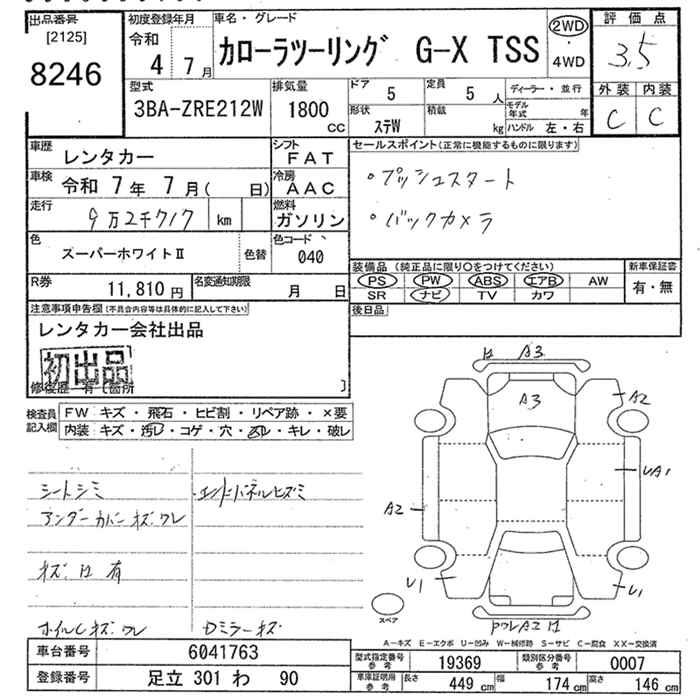 出品番号
[2125]
8246
初度登録年月
令和
4 7月
車名・グレード
カローラツーリング G-X TSS
2WD
・
4WD
評価点
3.5
外装 内装
C C
型式
3BA-ZRE212W
排気量
1800
CC
ドア
5
定員
5人
形状
ステW
積載
kg
ディーラー・並行
モデル年式 年
ハンドル 左・右
車歴
レンタカー
シフト
FAT
車検
令和 7年 7月( 日)
冷房
AAC
走行
9万2千717 km
燃料
ガソリン
色
スーパーホワイトⅡ
色替
色コード
040
R券
11,810円
名変通知期限
月 日
セールスポイント(正常に機能するものに限ります)
・プッシュスタート
・バックカメラ
装備品(純正品に限り○をつけてください)
PS PW ABS エアB AW
SR ナビ TV カワ
新車保証書
有・無
後日品
注意事項申告欄(不具合内容等は具体的に記入して下さい)
レンタカー会社出品
初出品
修復歴 有 [箇所 ]
検査員記入欄
FW キズ・飛石・ヒビ割・リペア跡・×要
内装 キズ・汚レ・コゲ・穴・スレ・キレ・破レ
シートシミ
アンダーカバーキズ、ワレ
キズ、H 有
ホイルCキズ、ワレ
・エンドパネルヒズミ
Dミラーキズ
A3
A3
A2
UA1
A2
U1
U1
スペア
A-キズ E-エクボ U-凹み W-補修跡 S-サビ C-腐食 XX-交換済
車台番号
6041763
登録番号
足立 301 わ 90
型式指定番号
参考
19369
類別区分番号
参考
0007
車庫証明用
参考
長さ 449cm 幅 174cm 高さ 146cm